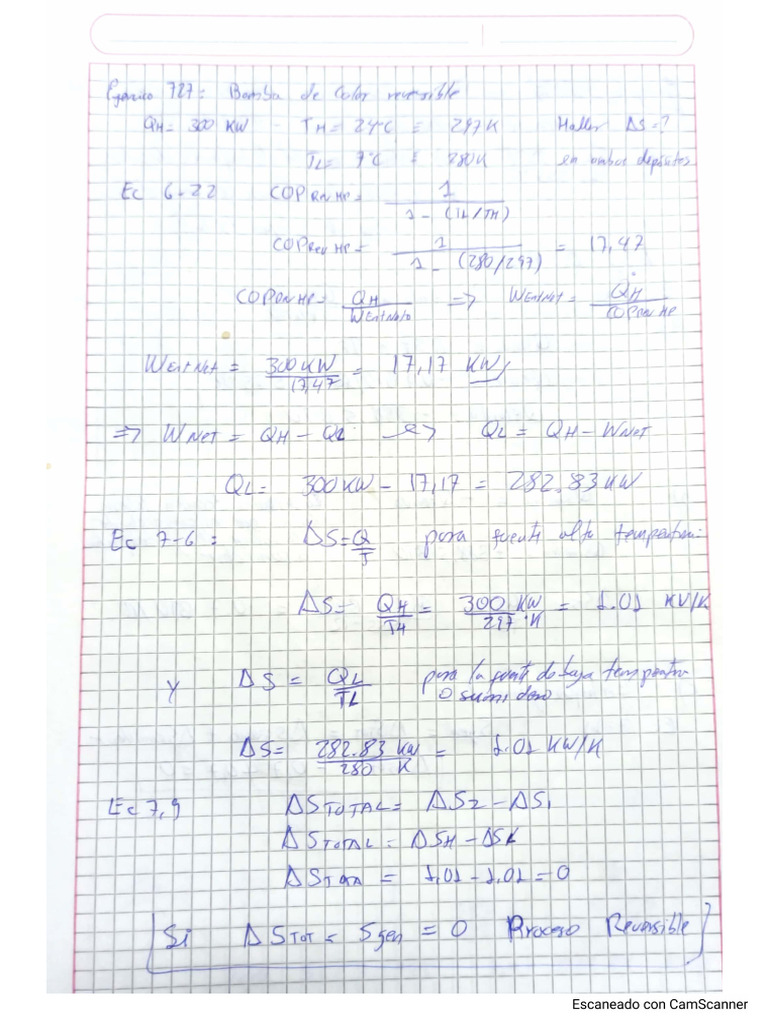 Ejercicio 727: Bomba de Calor reversible
QH= 300 KW - TH= 24°C = 297K Hallar ΔS=?
TL= 7°C = 280K en ambos depósitos
Ec 6-22 COPRev HP= 1 / 1 - (TL/TH)
COPRev HP= 1 / 1 - (280/297) = 17,47
COPRev HP= QH / WEntNeto ⇒ WEntNet= Q̇H / COPRev HP
WEntNet = 300KW / 17,47 = 17,17 KW
⇒ WNET = QH - QL ⇒ QL = QH - WNET
QL= 300KW - 17,17 = 282.83 KW
Ec 7-6 = ΔS=Q/T para fuente alta temperatura.
ΔS= QH/TH = 300 KW / 297 °K = 1.01 KW/K
Y ΔS = QL/TL para la fuente de baja temperatura
o sumidero
ΔS= 282.83 KW / 280 K = 1.01 KW/K
Ec 7,9 ΔSTOTAL= ΔS2 - ΔS1
ΔSTOTAL = ΔSH - ΔSL
ΔSTOTAL = 1,01 - 1,01 = 0
Si ΔSTOT = Sgen = 0 Proceso Reversible
Escaneado con CamScanner